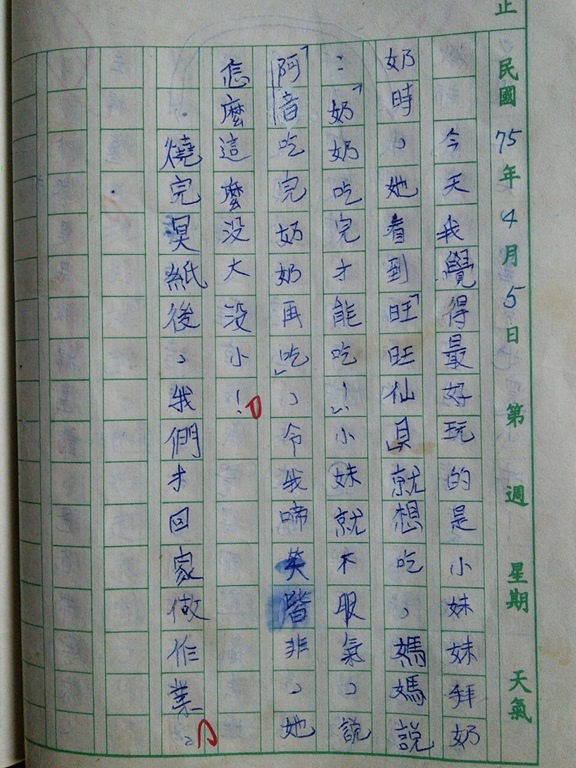 正
民國75年4月5日 第 週 星期 天氣
今天我覺得最好玩的是小妹妹拜奶
奶時，她看到「旺旺仙貝」就想吃，媽媽說
：「奶奶吃完才能吃！」小妹就不服氣，說
「阿音吃完奶奶再吃」，令我啼笑階非，她
怎麼這麼沒大沒小！
燒完冥紙後，我們才回家做作業。